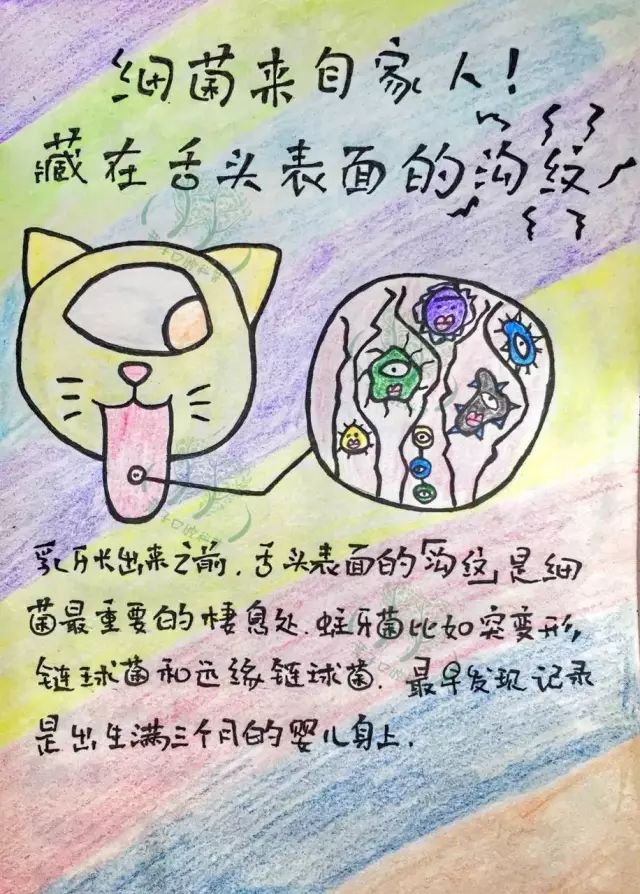 细菌来自家人!
藏在舌头表面的沟纹
乳牙长出来之前.舌头表面的「沟纹」是细
菌最重要的栖息处.蛀牙菌比如突变形,
链球菌和远缘链球菌.最早发现记录
是出生满三个月的婴儿身上.